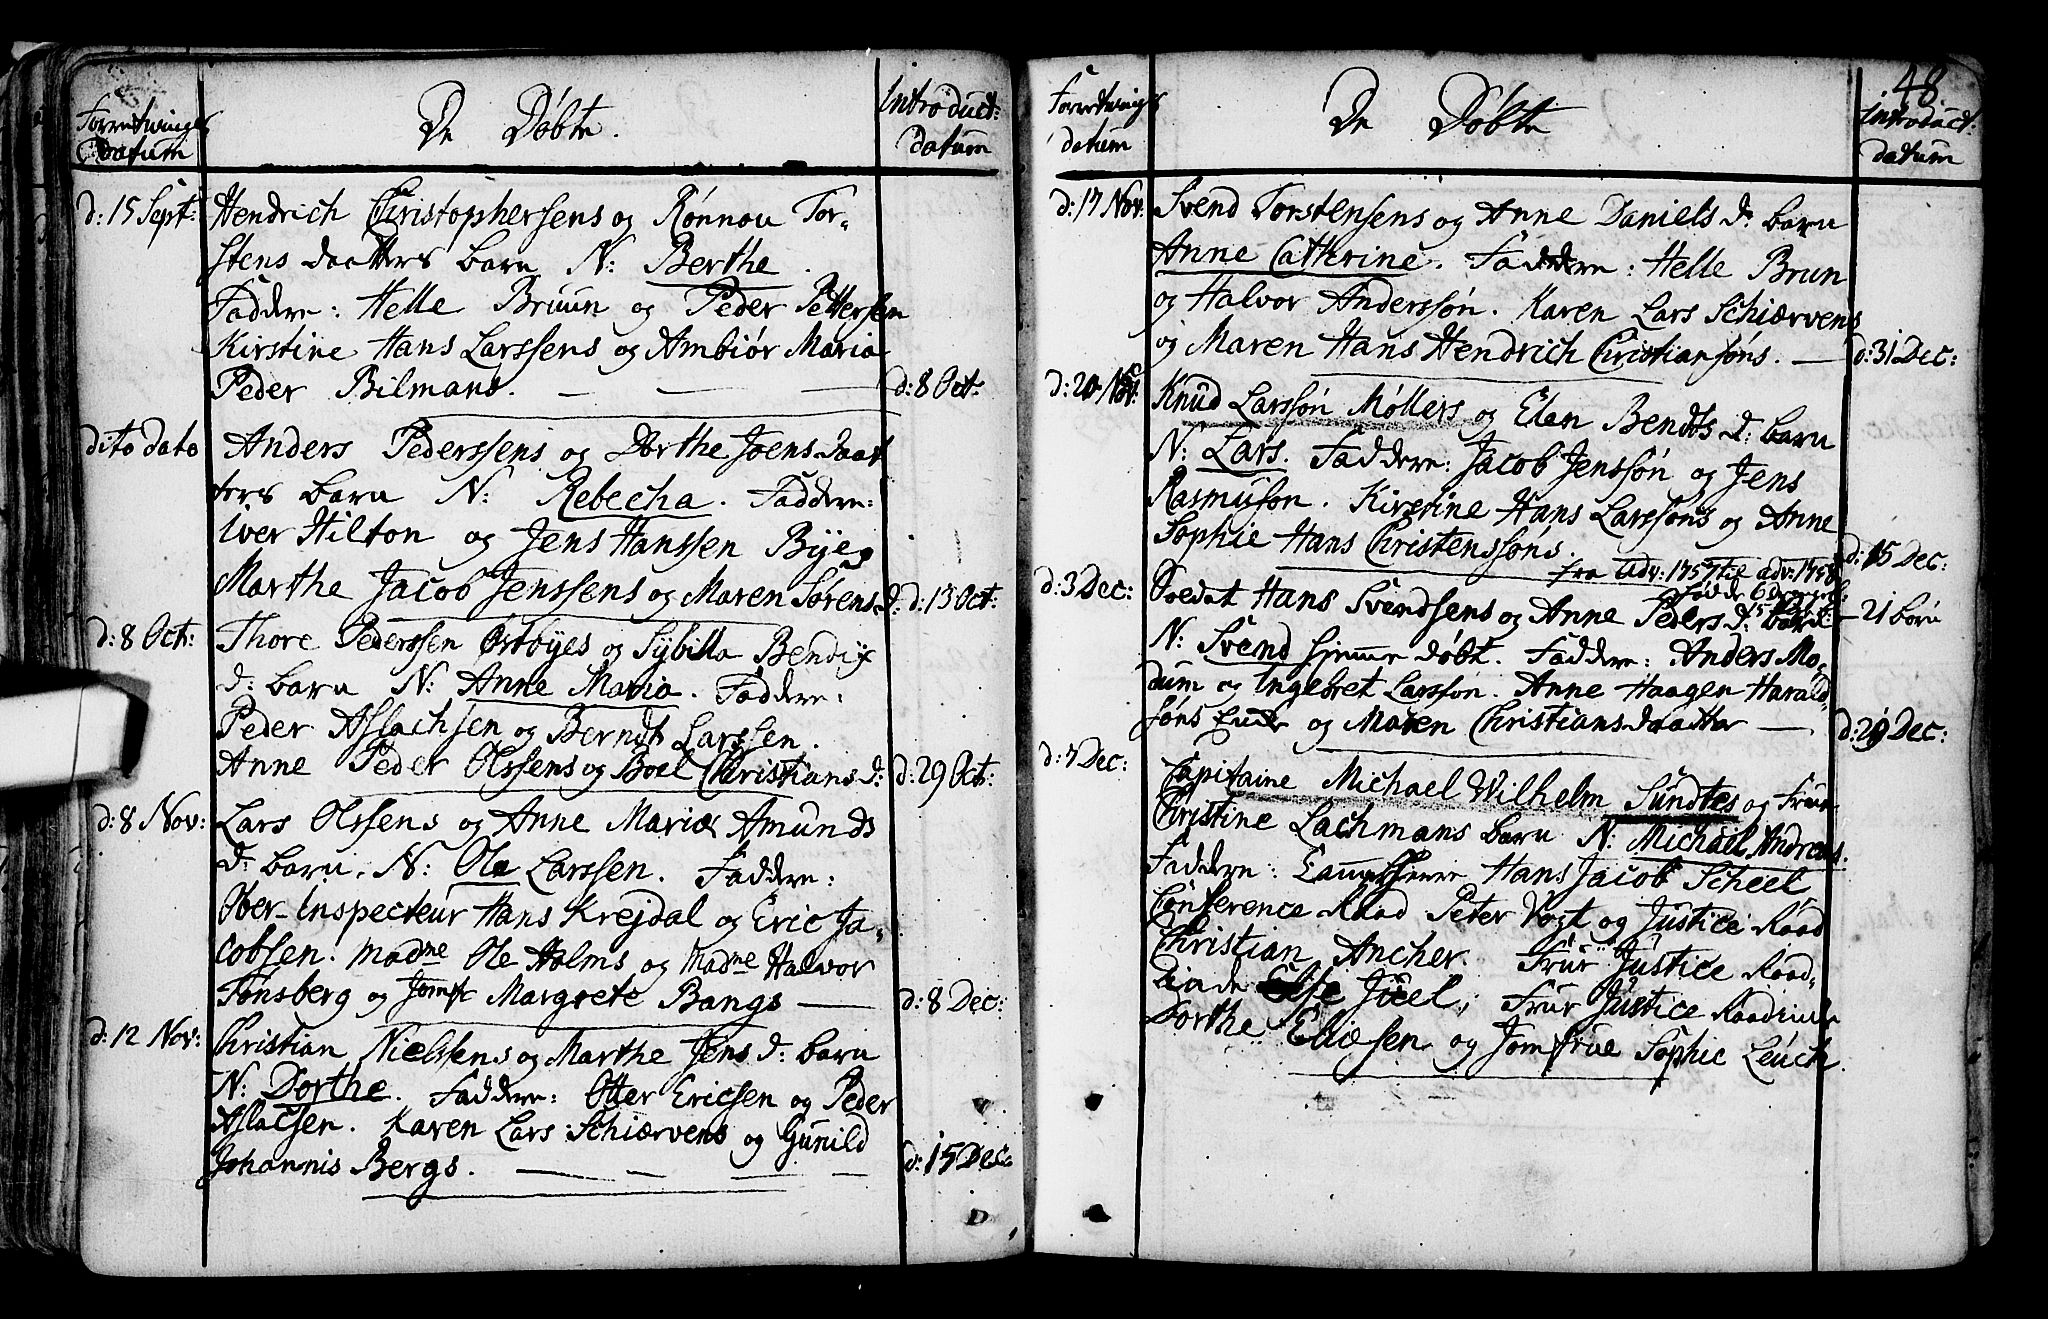 Forretnings
Datum
De Døbte.
Introduct:
Datum
d: 15 Sept:
Hendrich Christophersens og Rønnou Tor-
stens daatters barn N: Berthe.
Faddere: Helle Bruun og Peder Pettersen
Kirstine Hans Larssens og Ambiør Maria
Peder Bilmans. — — — d: 8 Oct:
dito dato
Anders Pederssens og Dorthe Joens daat
ters barn N: Rebecha. Faddere:
Iver Hilton og Jens Hanssen Byes
Marthe Jacob Jenssens og Maren Sørens d: d: 13 Oct:
d: 8 Oct:
Thore Pederssen Østbyes og Sybilla Bendix
d: barn N: Anne Maria. Faddere:
Peder Aslachsen og Berndt Larssen.
Anne Peder Olssens og Boel Christians d: d: 29 Oct:
d: 8 Nov:
Lars Olssens og Anne Mariæ Amunds
d: barn. N: Ole Larssen. Faddere:
Ober-Inspecteur Hans Krejdal og Eric Ja-
cobsen. Madme Ole Holms og Madme Halvor
Tønsberg og Jomfr Margrete Bangs — d: 8 Dec:
d: 12 Nov:
Christian Nielssens og Marthe Jens d: barn
N: Dorthe. Faddere: Otter Ericsen og Peder
Aslacsen. Karen Lars Schiærvens og Gunild
Johannis Bergs. — — — — d: 15 Dec:
D
48
Forretnings
datum
De Døbte
Introduct:
datum
d: 17 Nov:
Svend Torstensens og Anne Daniels d: barn
Anne Cathrine. Faddere: Helle Brun
og Halvor Anderssøn. Karen Lars Schiærvens
og Maren Hans Hendrich Christiansøns. — d: 31 Dec:
d: 20 Nov:
Knud Larssøn Møllers og Elen Bendts d: barn
N: Lars. Faddere: Jacob Jenssøn og Jens
Rasmusøn. Kirstine Hans Larssøns og Anne
Sophie Hans Christenssøns. d: 15 Dec:
fra Adv: 1757 til adv: 1758
fødde
d: 3 Dec:
Soldat Hans Svendsens og Anne Peders d: barn — 21 børn
N: Svend hjemme døbt. Faddere: Anders Mo-
dum og Ingebret Larssøn. Anne Haagen Harald-
søns og Maren Christiansdaatter — d: 29 Dec:
d: 7 Dec:
Capitaine Michael Wilhelm Sundtes og Frue
Christine Lachmans barn N: Michael Andreas.
Faddere: Cammerherre Hans Jacob Scheel
Conference Raad Peter Vogt og Justice Raad
Christian Ancher. Frue Justice Raad-
inde Else Juel; Frue Justice Raadinde
Dorthe Eliesen og Jomfrue Sophie Leuch.